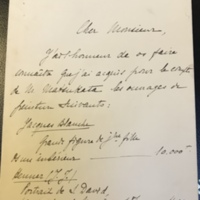 Cher Monsieur,
J'ai l'honneur de vs faire
connaitre que j'ai acquis pour le compte
de M. Matsukata les ouvrages de
peinture suivants:
Jacques Blanche
grande figure de jne fille
ds un intérieur — 10.000
Henner
Portrait de L. David